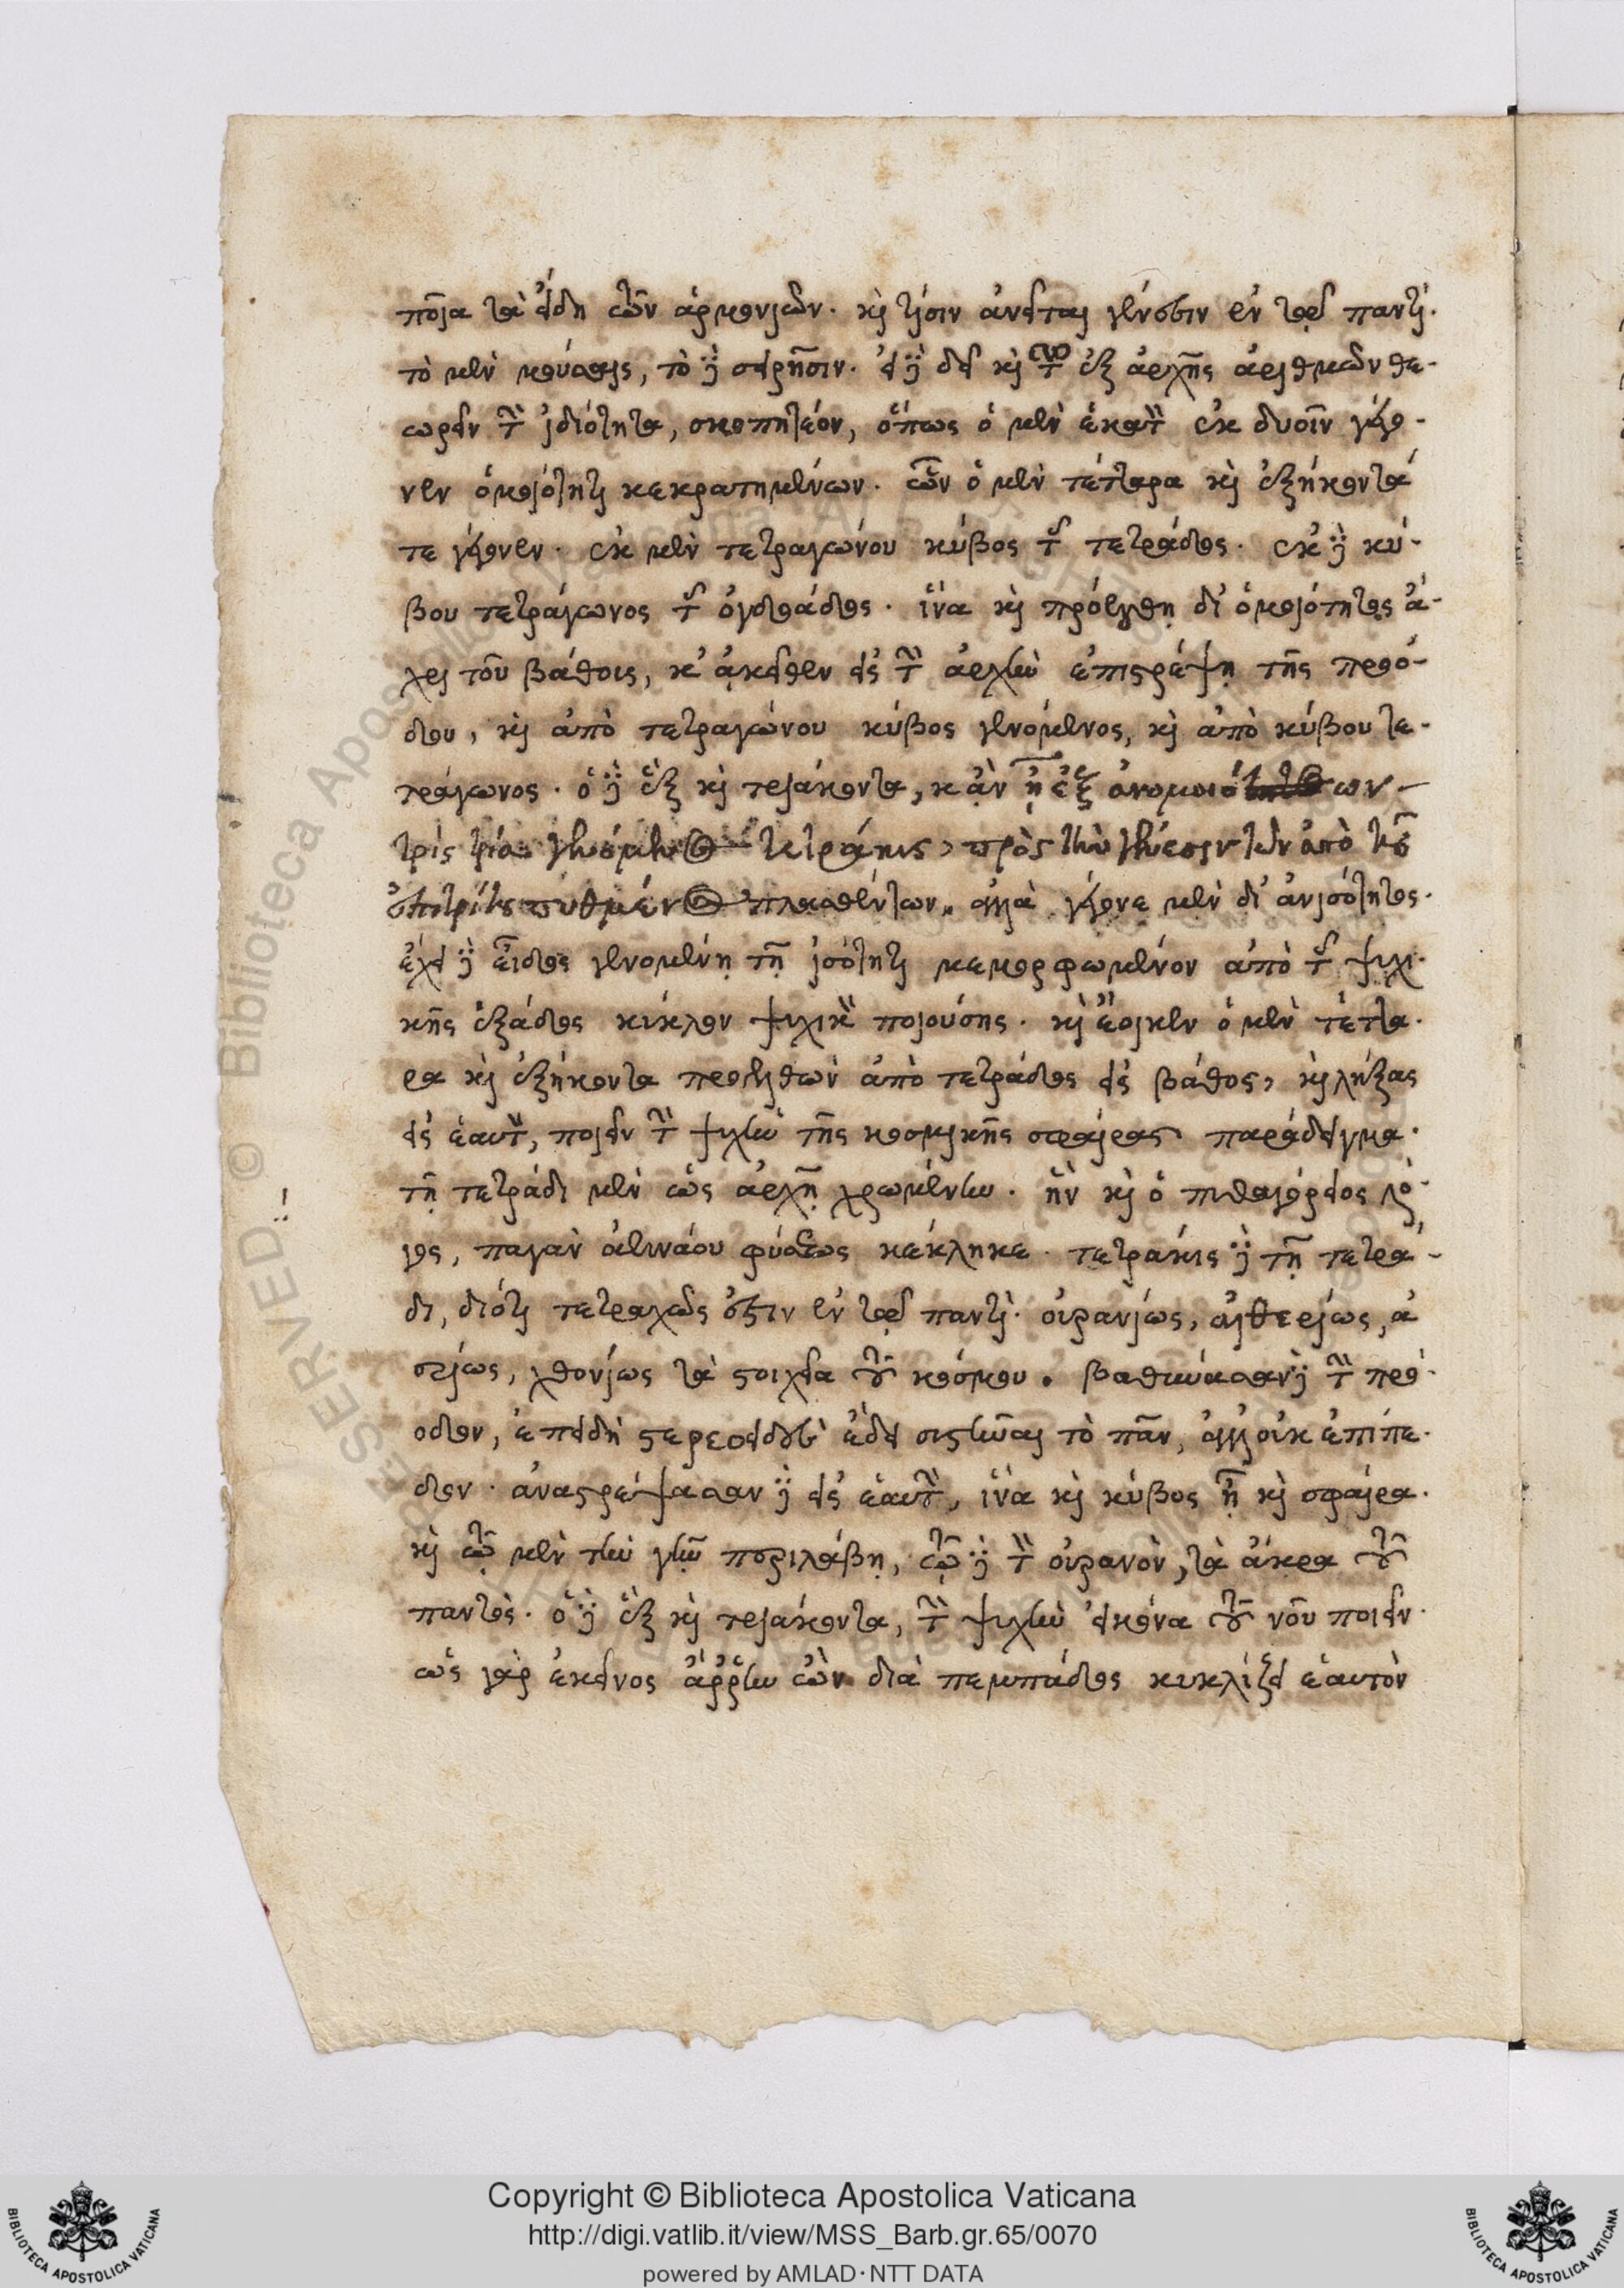 ποῖα τὰ εἴδη τῶν ἁρμονιῶν. καὶ τίσιν ἀνεῖται γένεσιν ἐν τῷ παντὶ.
τὸ μὲν μούσαις, τὸ δὲ σειρῆσιν. εἰ δὲ δεῖ καὶ τῶν ἐξ ἀρχῆς ἀριθμῶν θε-
ωρεῖν τὴν ἰδιότητα, σκοπητέον, ὅπως ὁ μὲν ἑκατὸν ἐκ δυοῖν γέγο-
νεν ὁμοιότητι κεκρατημένων. ὧν ὁ μὲν τέτταρα καὶ ἑξήκοντά
τε γέγονεν. ἐκ μὲν τετραγώνου κύβος τῆς τετράδος. ἐκ δὲ κύ-
βου τετράγωνος τῆς ὀγδοάδος. ἵνα καὶ προέλθῃ δι' ὁμοιότητος ἄ-
χρι τοῦ βάθους, κἀκεῖθεν εἰς τὴν ἀρχὴν ἐπιστρέψῃ τῆς προό-
δου, καὶ ἀπὸ τετραγώνου κύβος γενόμενος, καὶ ἀπὸ κύβου τε-
τράγωνος. ὁ δὲ ἓξ καὶ τριάκοντα, κἂν ᾖ ἐξ ἀνομοίων
τρὶς τρία γενόμενος τετράκις, πρὸς τὴν γένεσιν τῶν ἀπὸ τοῦ
ἐπιτρίτου πυθμένος πλασθέντων, ἀλλὰ γέγονε μὲν δι' ἀνισότητος.
ἔχει δὲ εἶδος γενομένη τῇ ἰσότητι μεμορφωμένον ἀπὸ τῆς ψυχι-
κῆς ἑξάδος κύκλον ψυχικὸν ποιούσης. καὶ ἔοικεν ὁ μὲν τέττα-
ρα καὶ ἑξήκοντα προελθὼν ἀπὸ τετράδος εἰς βάθος, καὶ λήξας
εἰς ἑαυτὸν, ποιεῖν τὴν ψυχὴν τῆς κοσμικῆς σφαίρας παράδειγμα.
τῇ τετράδι μὲν ὡς ἀρχῇ χρωμένην. ἣν καὶ ὁ πυθαγόρειος λό-
γος, παγὰν ἀενάου φύσεως κέκληκε. τετράκις δὲ τῇ τετρά-
δι, διότι τετραχῶς ἐστιν ἐν τῷ παντὶ. οὐρανίως, αἰθερίως, ἀ
ερίως, χθονίως τὰ στοιχεῖα τοῦ κόσμου. βαθύνασαν δὲ τὴν πρό-
οδον, ἐπειδὴ στερεοειδὲς ἔδει συστῆναι τὸ πᾶν, ἀλλ' οὐκ ἐπίπε-
δον. ἀναστρέψασαν δὲ εἰς ἑαυτὴν, ἵνα καὶ κύβος ᾖ καὶ σφαίρα.
καὶ τῷ μὲν τὴν γῆν περιλάβῃ, τῷ δὲ τὸν οὐρανὸν, τὰ ἄκρα τοῦ
παντός. ὁ δὲ ἓξ καὶ τριάκοντα, τὴν ψυχὴν εἰκόνα τοῦ νοῦ ποιεῖν.
ὡς γὰρ ἐκεῖνος ἄρρην ὢν διὰ πεμπάδος κυκλίζει ἑαυτὸν
Copyright © Biblioteca Apostolica Vaticana
http://digi.vatlib.it/view/MSS_Barb.gr.65/0070
powered by AMLAD·NTT DATA